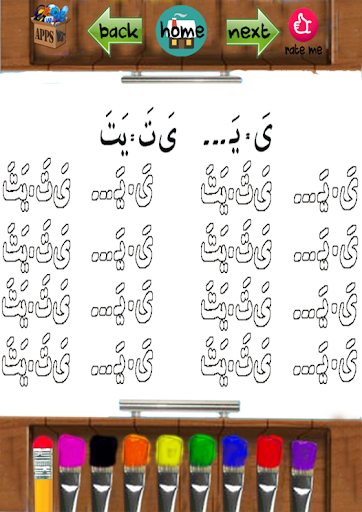 APPS back home next rate me
يَ = يَـ... يَ تَ = يَتَ
يَ = يَـ... يَ تَ = يَتَ يَ = يَـ... يَ تَ = يَتَ
يَ = يَـ... يَ تَ = يَتَ يَ = يَـ... يَ تَ = يَتَ
يَ = يَـ... يَ تَ = يَتَ يَ = يَـ... يَ تَ = يَتَ
يَ = يَـ... يَ تَ = يَتَ يَ = يَـ... يَ تَ = يَتَ